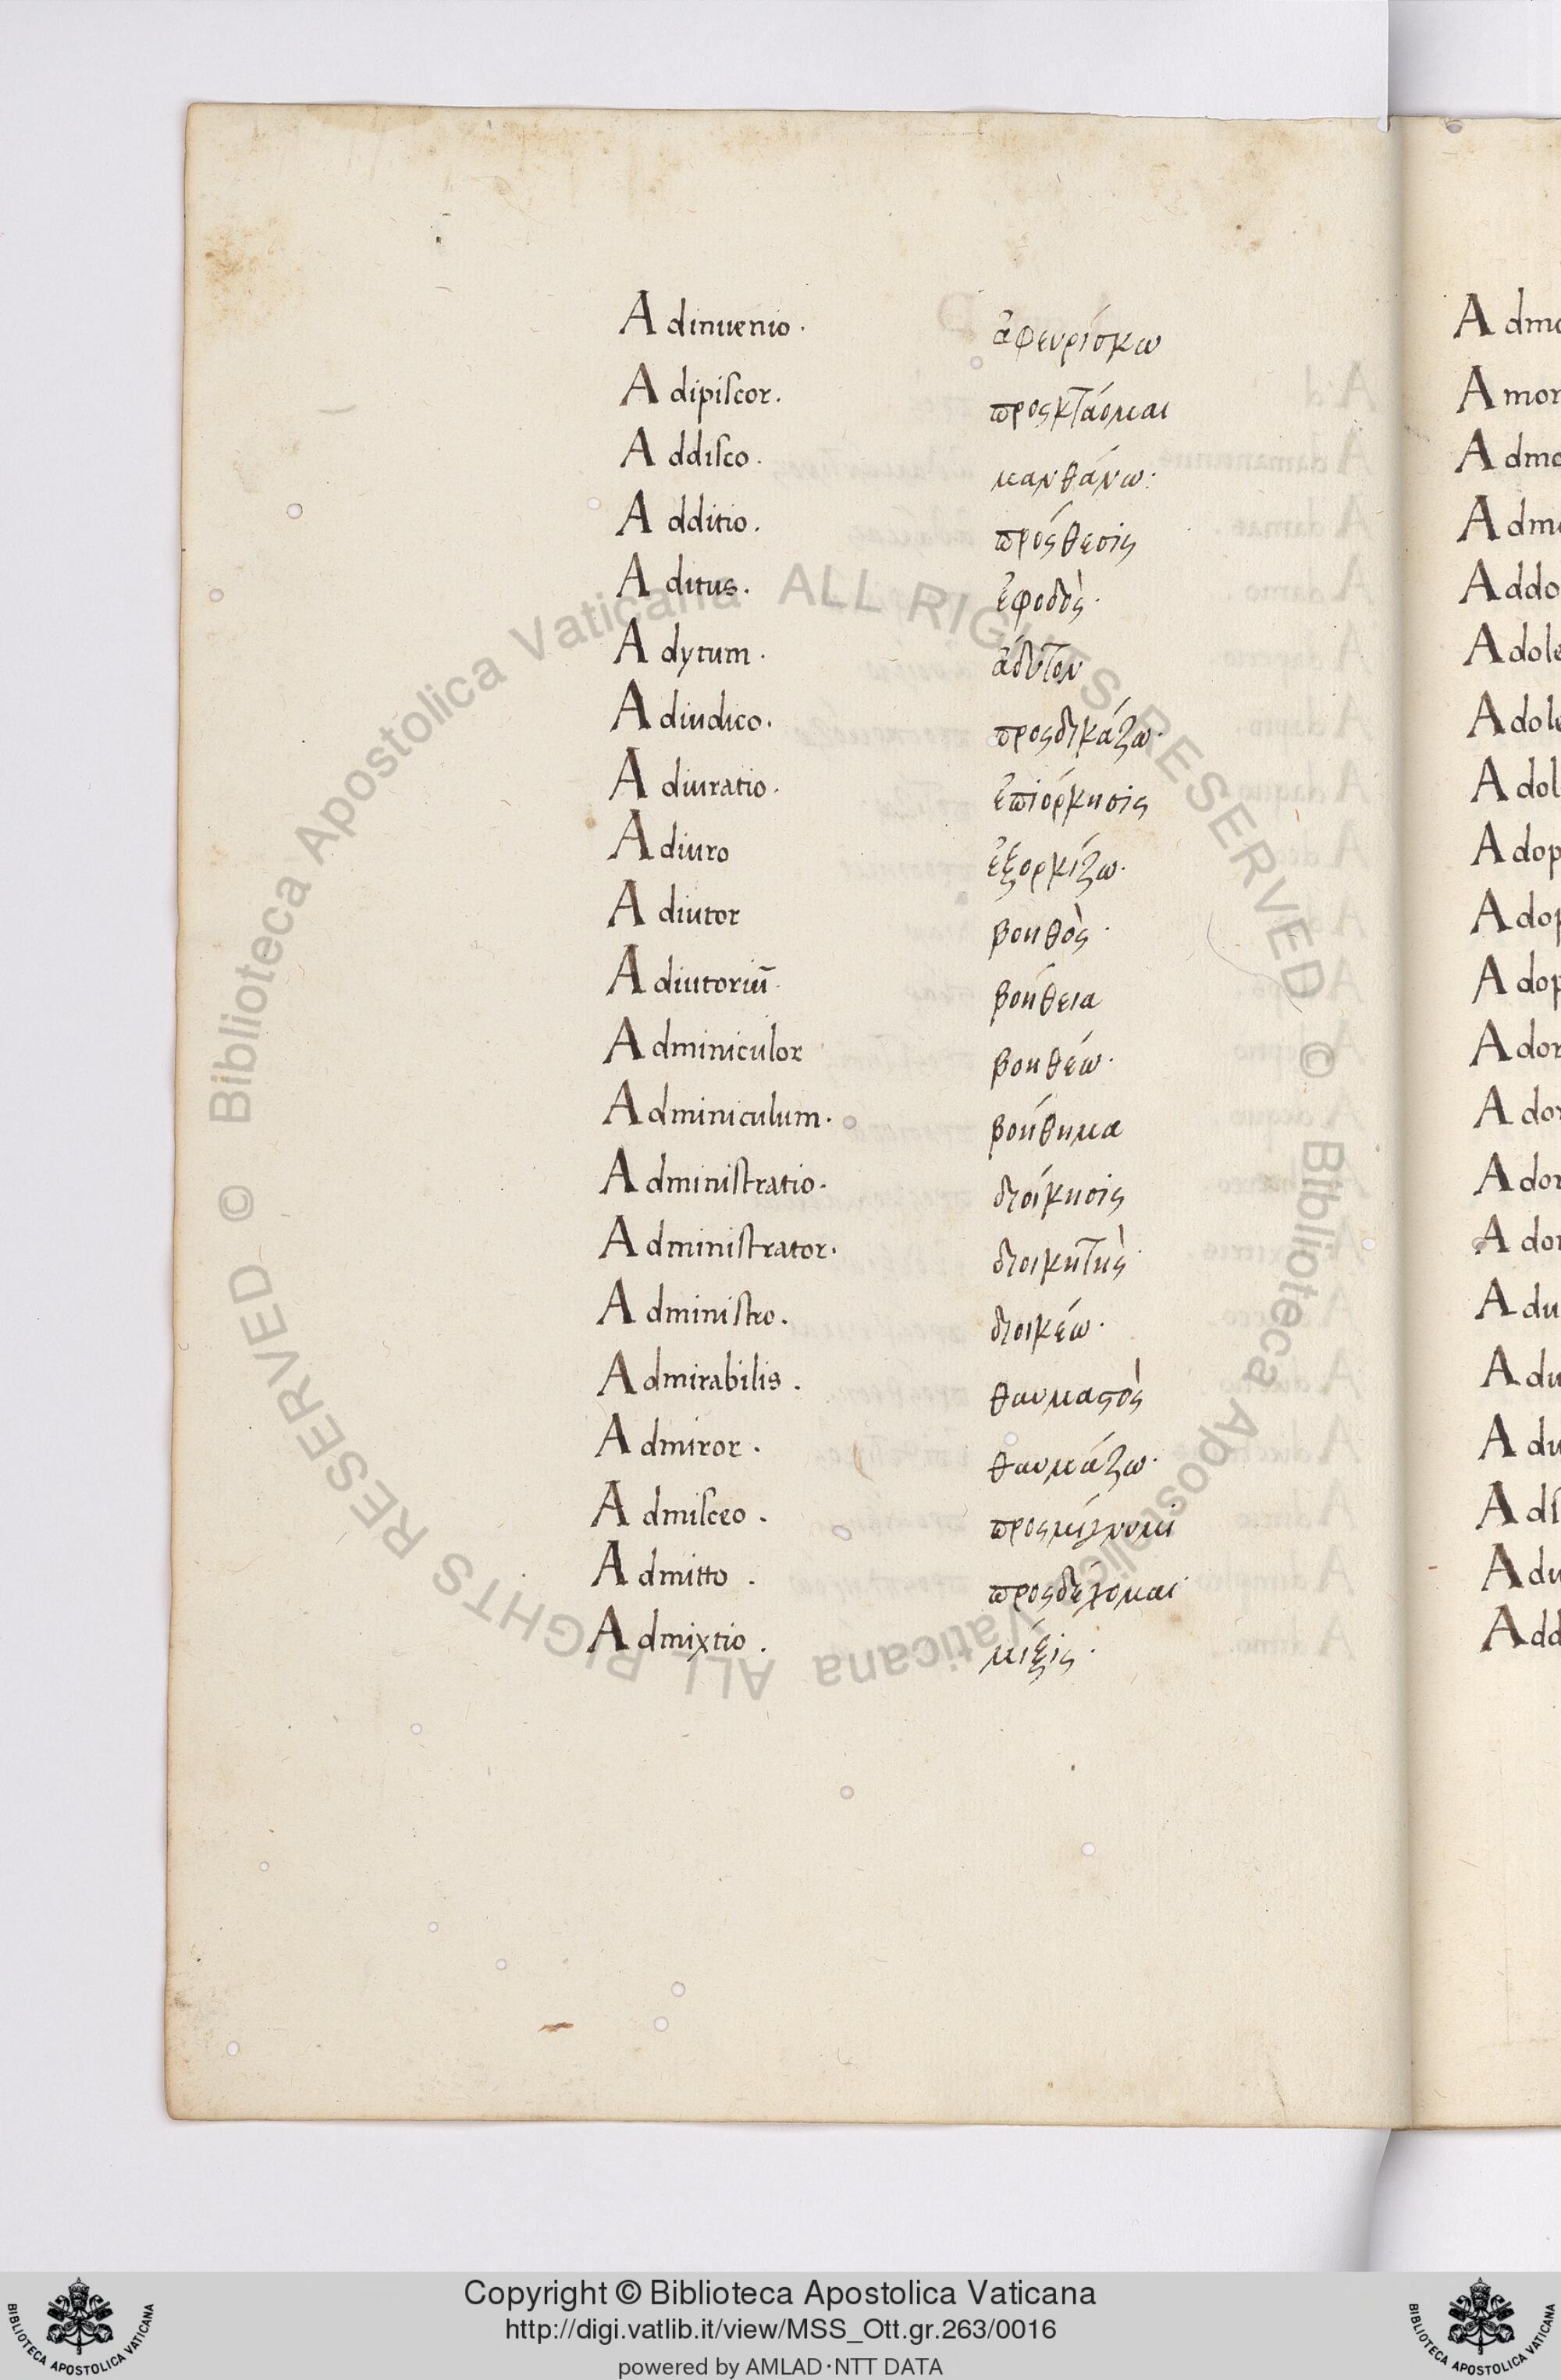 Adinuenio. ἀφευρίσκω
Adipiſcor. προςκτάομαι
Addiſco. μανθάνω.
Additio. πρόςθεσις
Aditus. ἐφοδὸς.
Adytum. άδυτον
Adiudico. προςδικάζω.
Adiuratio. ἐπιόρκησις
Adiuro ἐξορκίζω.
Adiutor βοηθὸς.
Adiutoriū. βοήθεια
Adminiculor βοηθέω.
Adminiculum. βοήθημα
Adminiſtratio. διοίκησις
Adminiſtrator. διοικητὴς.
Adminiſtro. διοικέω.
Admirabilis. θαυμαςὸς
Admiror. θαυμάζω.
Admiſceo. προςμίγνυμι
Admitto. προςδέχομαι
Admixtio. μίξις.
Admo
Amon
Admo
Addo
Adole
Adole
Adol
Adop
Adop
Adop
Ador
Ador
Ador
Ador
Adu
Adu
Adu
Adu
Add
© Biblioteca Apostolica Vaticana ALL RIGHTS RESERVED © Biblioteca Apostolica Vaticana ALL RIGHTS RESERVED
Copyright © Biblioteca Apostolica Vaticana
http://digi.vatlib.it/view/MSS_Ott.gr.263/0016
powered by AMLAD·NTT DATA
BIBLIOTECA APOSTOLICA VATICANA
BIBLIOTECA APOSTOLICA VATICANA